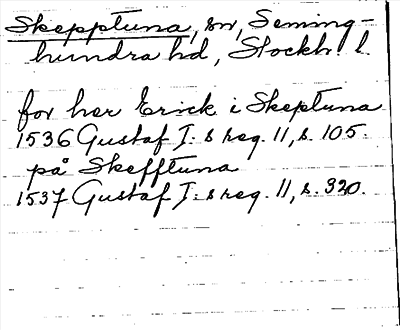 Skepptuna, sn, Seming-
hundra hd, Stockh. l.
for her Erick i Skeptuna
1536 Gustaf I:s reg. 11, s. 105.
på Skefftuna
1537 Gustaf I:s reg. 11, s. 320.